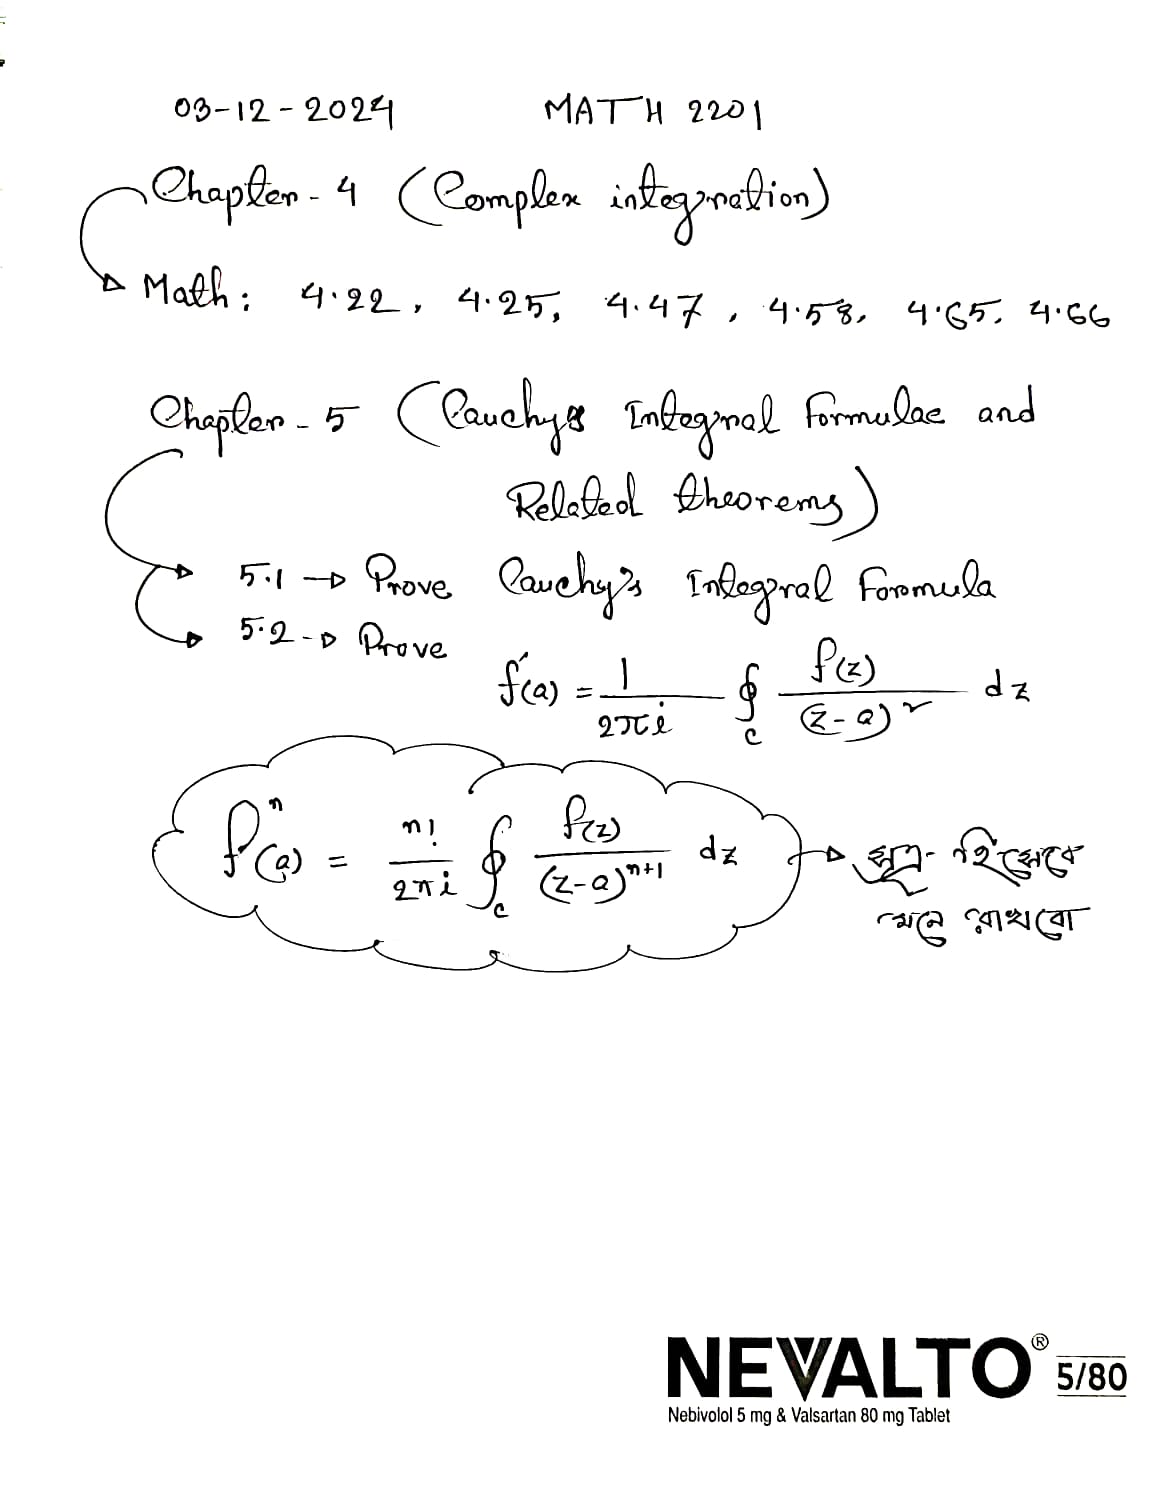 03-12-2024 MATH 2201
Chapter-4 (Complex integration)
Math: 4.22, 4.25, 4.47, 4.58, 4.65, 4.66
Chapter-5 (Cauchy's Integral Formulae and
Related theorems)
5.1 → Prove Cauchy's Integral Formula
5.2 → Prove
f'(a) = 1/2πi ∮c f(z)/(z-a)² dz
fⁿ(a) = n!/2πi ∮c f(z)/(z-a)ⁿ⁺¹ dz → সূত্র হিসেবে
মনে রাখবো
NEVALTO® 5/80
Nebivolol 5 mg & Valsartan 80 mg Tablet